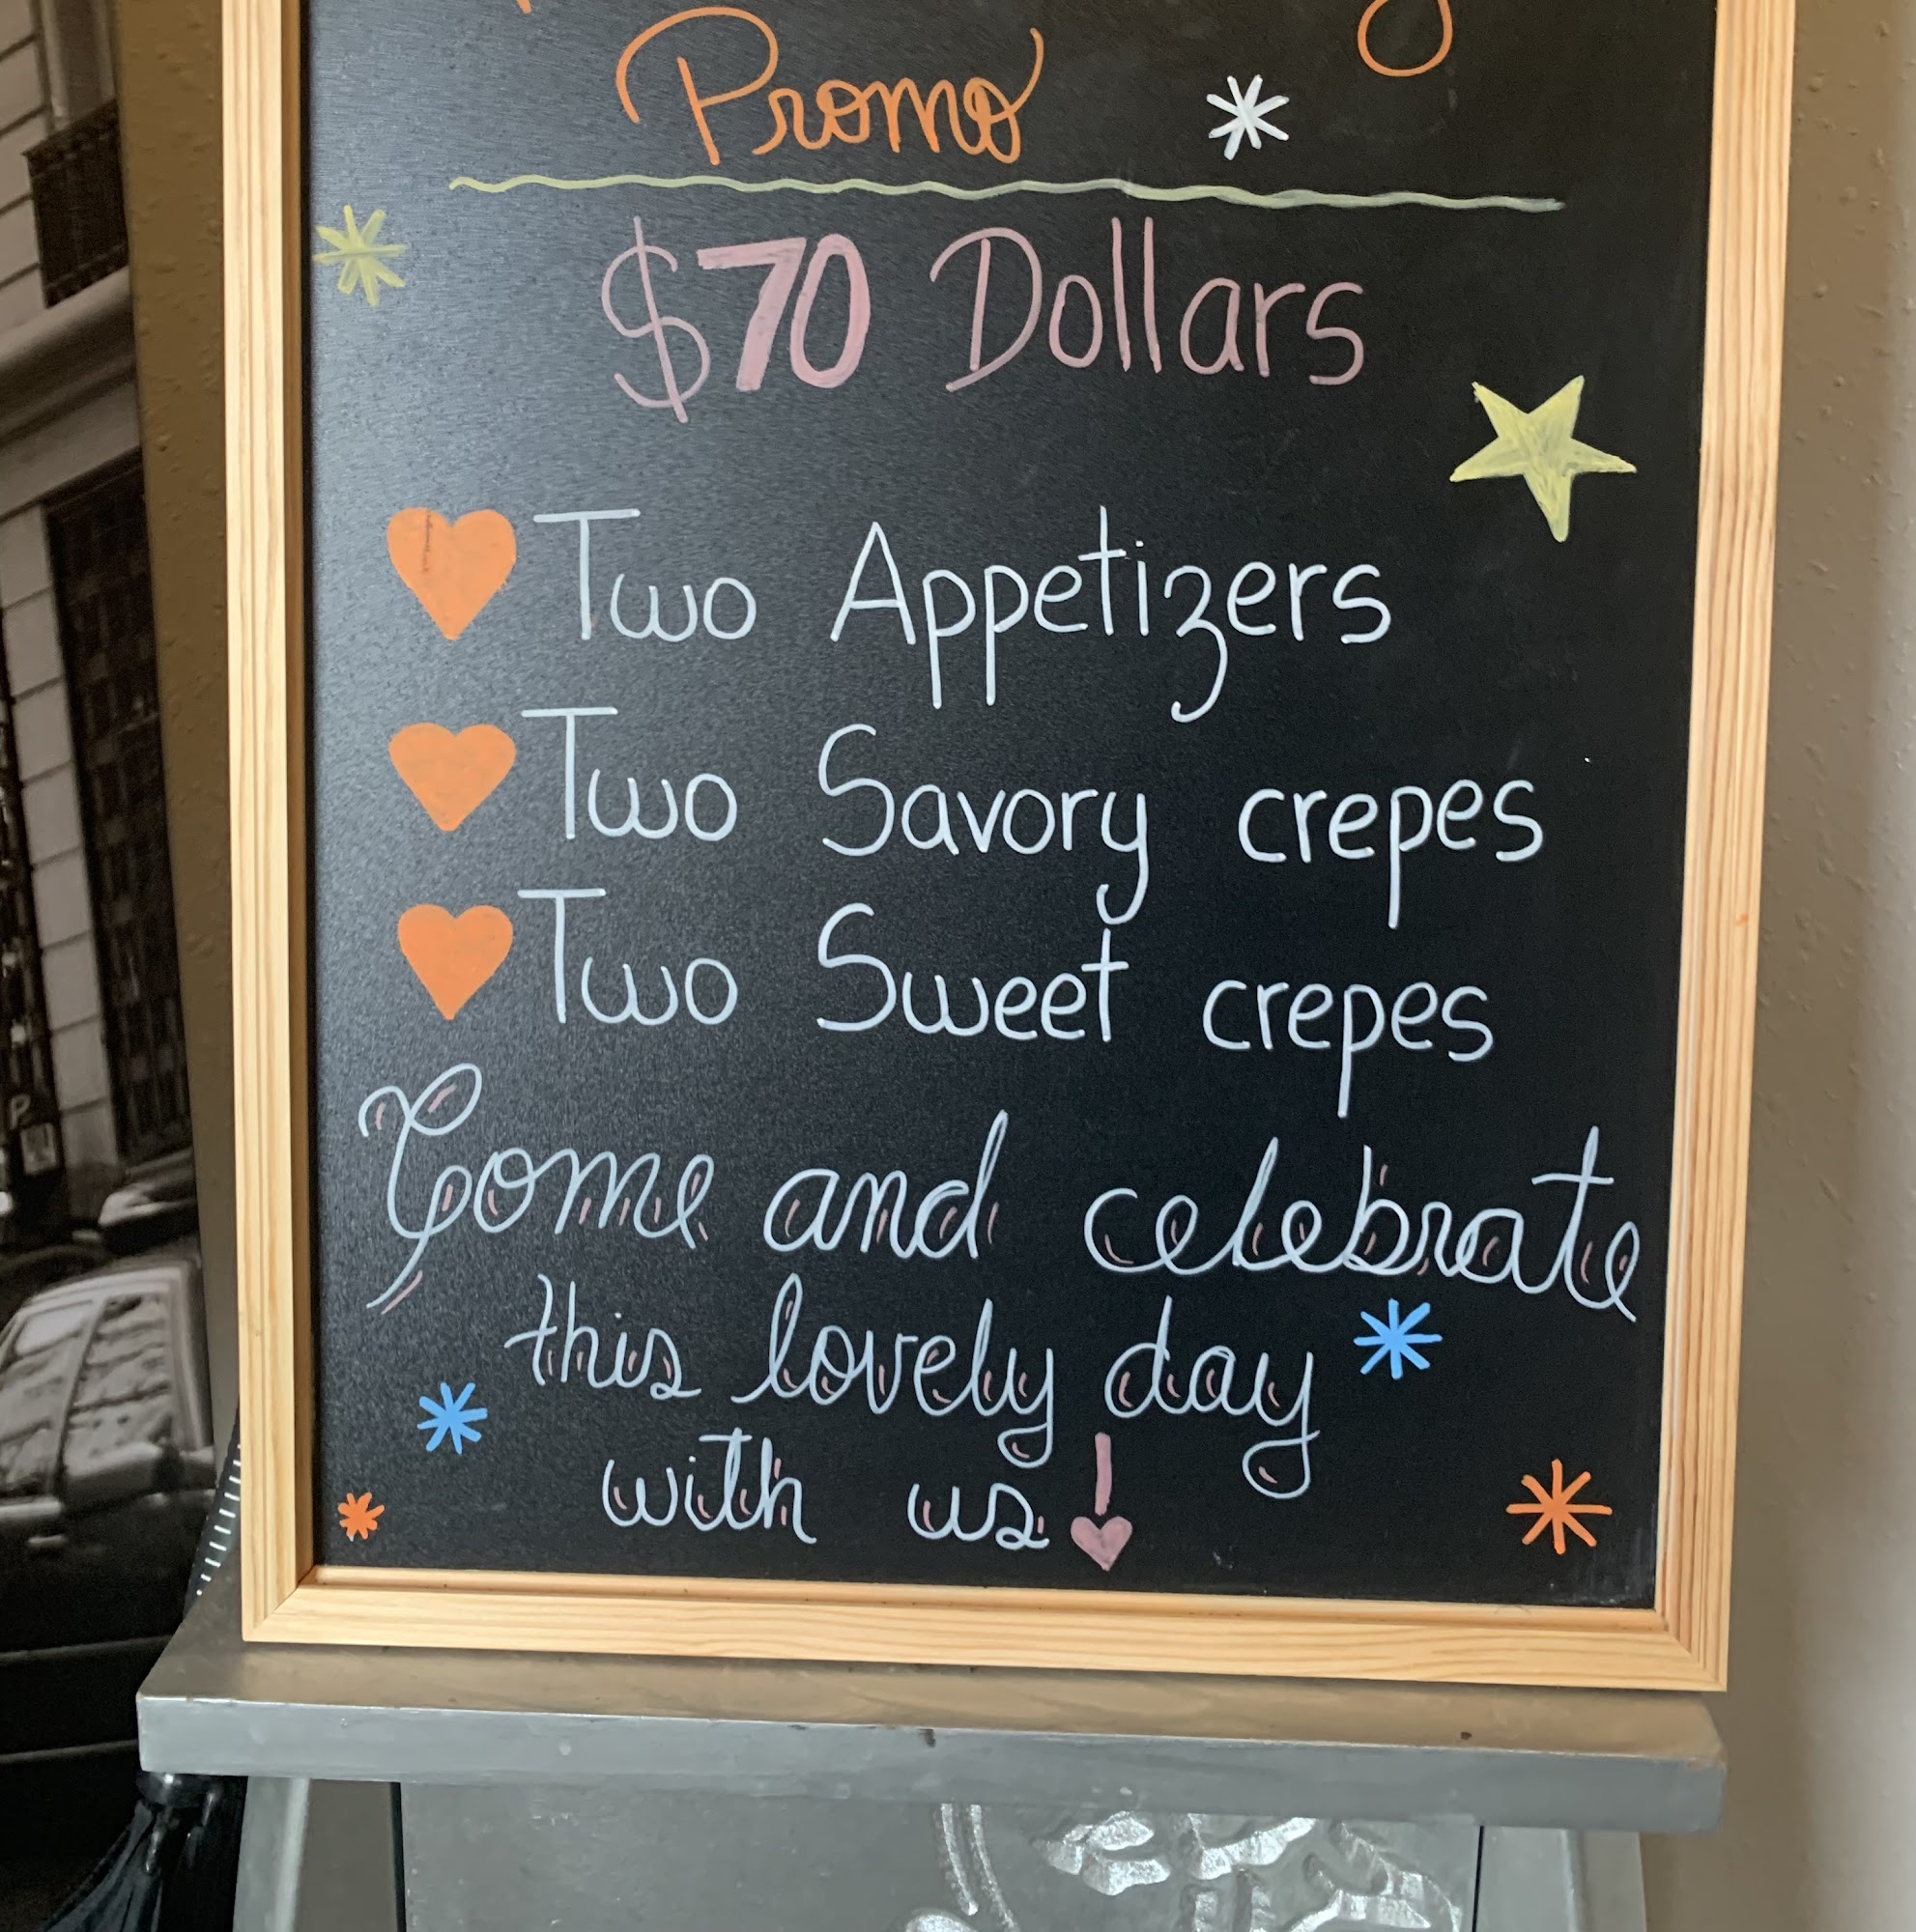 Promo
$70 Dollars
Two Appetizers
Two Savory crepes
Two Sweet crepes
Come and celebrate
this lovely day
with us!